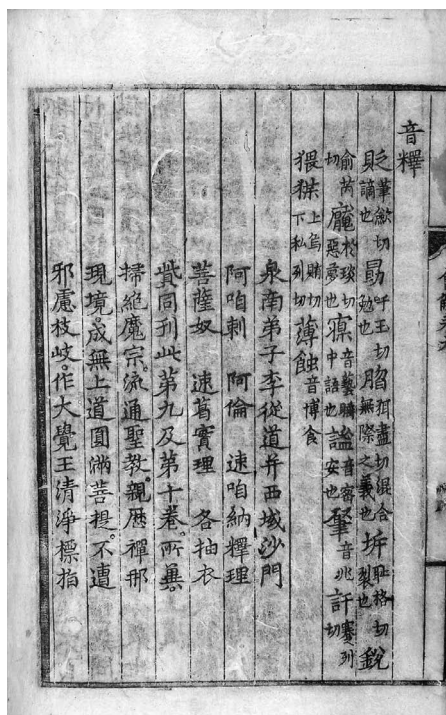 音釋
貶筆歛切謫也勗吁玉切勉也㬷弭盡切混合無際之義也坼恥格切裂也銳
俞芮切魘於琰切惡夢也寱音藝睡中語也謐音密安也肇音兆訐切
猥褋上烏賄切下私列切薄蝕音博食
泉南弟子李從道并西域沙門
阿咱剌 阿倫 速咱納釋理
菩薩奴 速葛寶理 各抽衣
貲同刊此第九及第十卷。所冀
掃絕魔宗。流通聖教。親歷禪那
現境。成無上道圓滿菩提。不遭
邪慮枝岐。作大覺王清淨標指